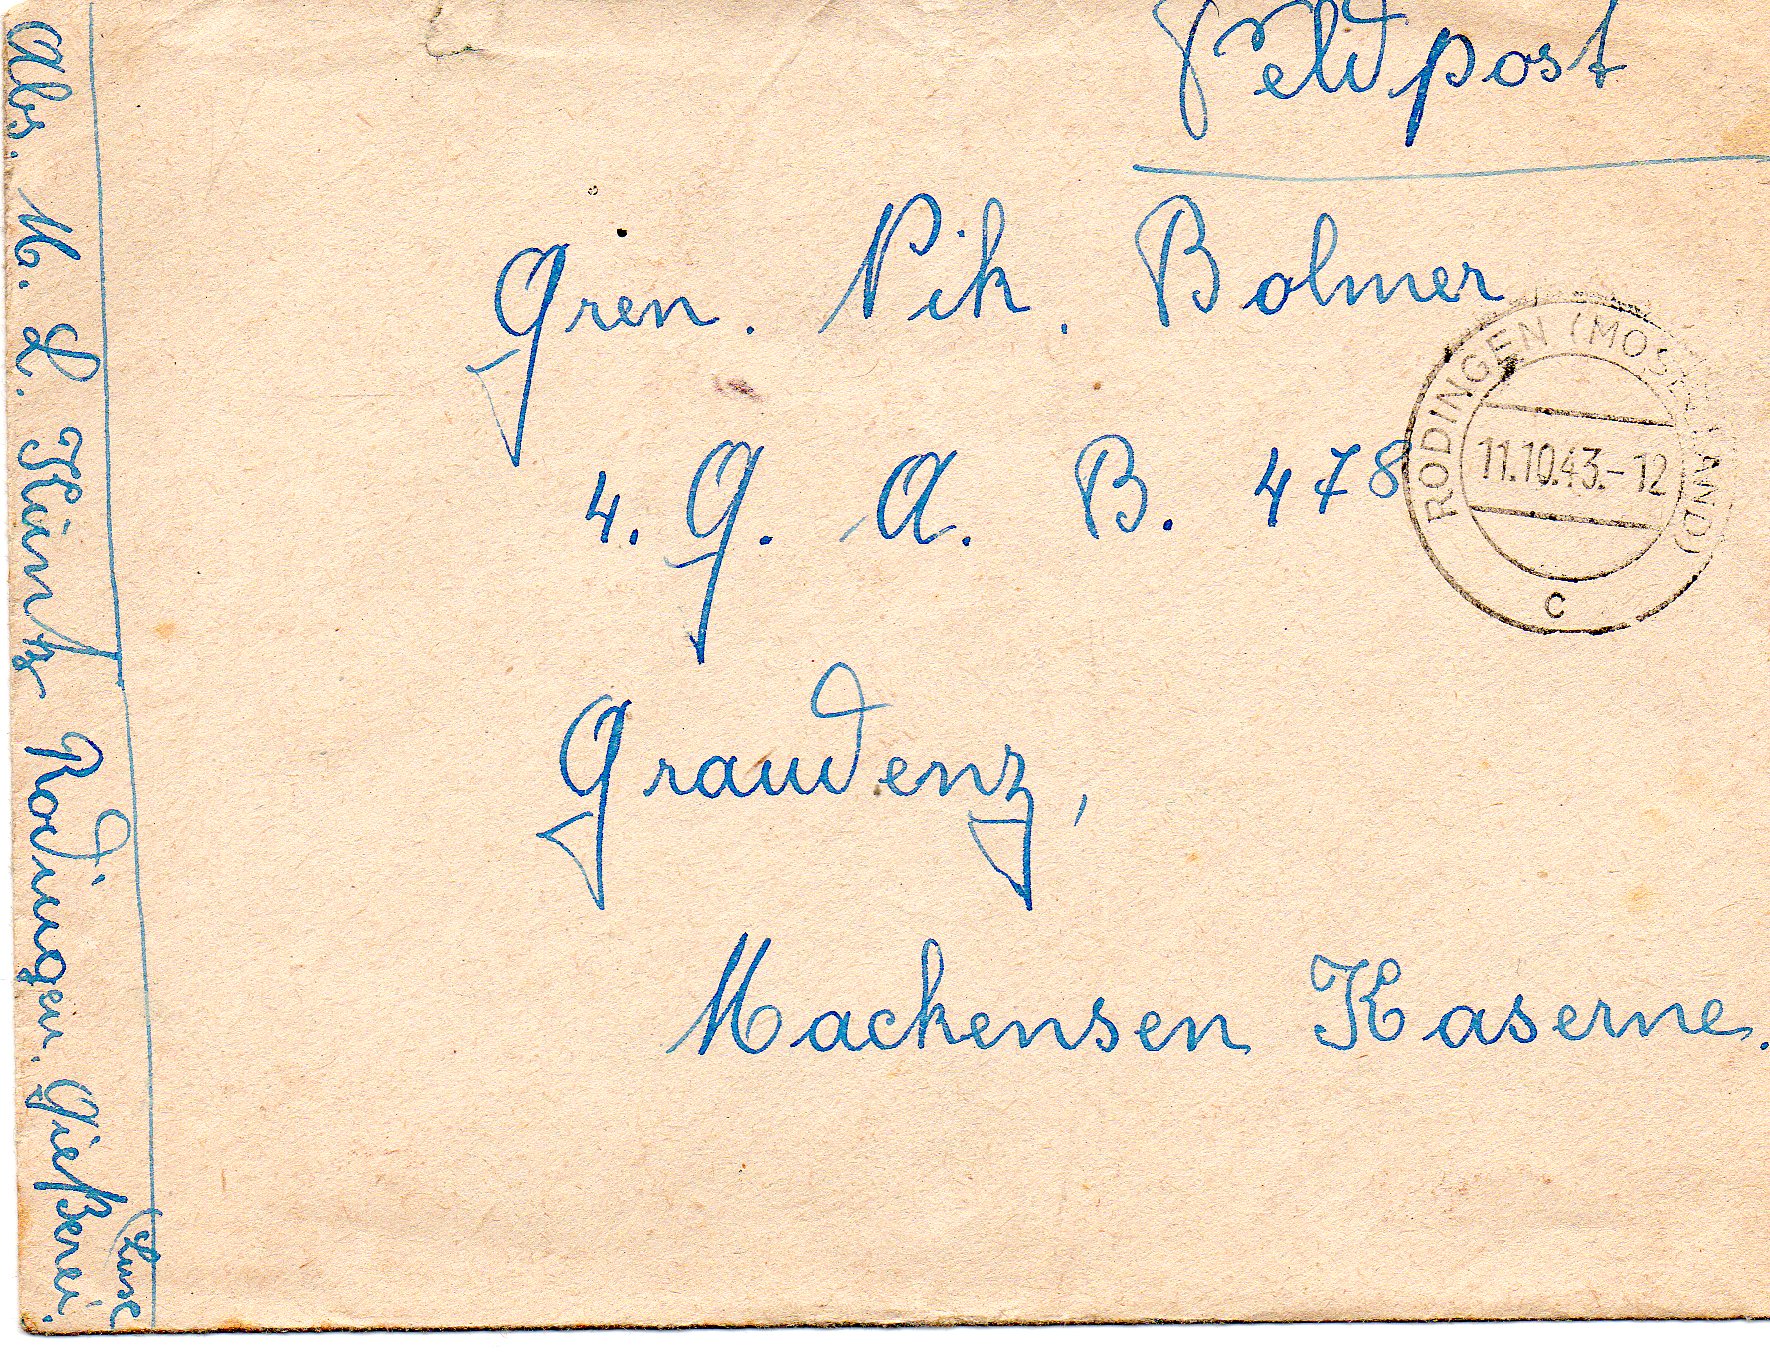 Feldpost
Gren. Nik. Bolmer
4. G. A. B. 478
Graudenz,
Mackensen Kaserne.
RODINGEN (MOSELLAND)
11.10.43.-12
c
Abs. M. L. Kuntz Rodingen. Gießerei.